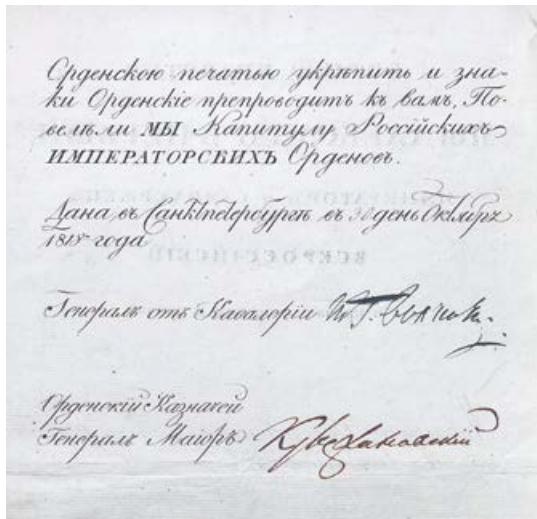 Орденскою печатью укрѣпить и зна-
ки Орденскіе препроводить къ вамъ, По-
велѣли МЫ Капитулу Россійскихъ
ИМПЕРАТОРСКИХЪ Орденовъ.
Дана въ Санктпетербургѣ въ 30 день Октября
года
Генералъ отъ Кавалеріи
Орденскій Казначей
Генералъ Маіоръ